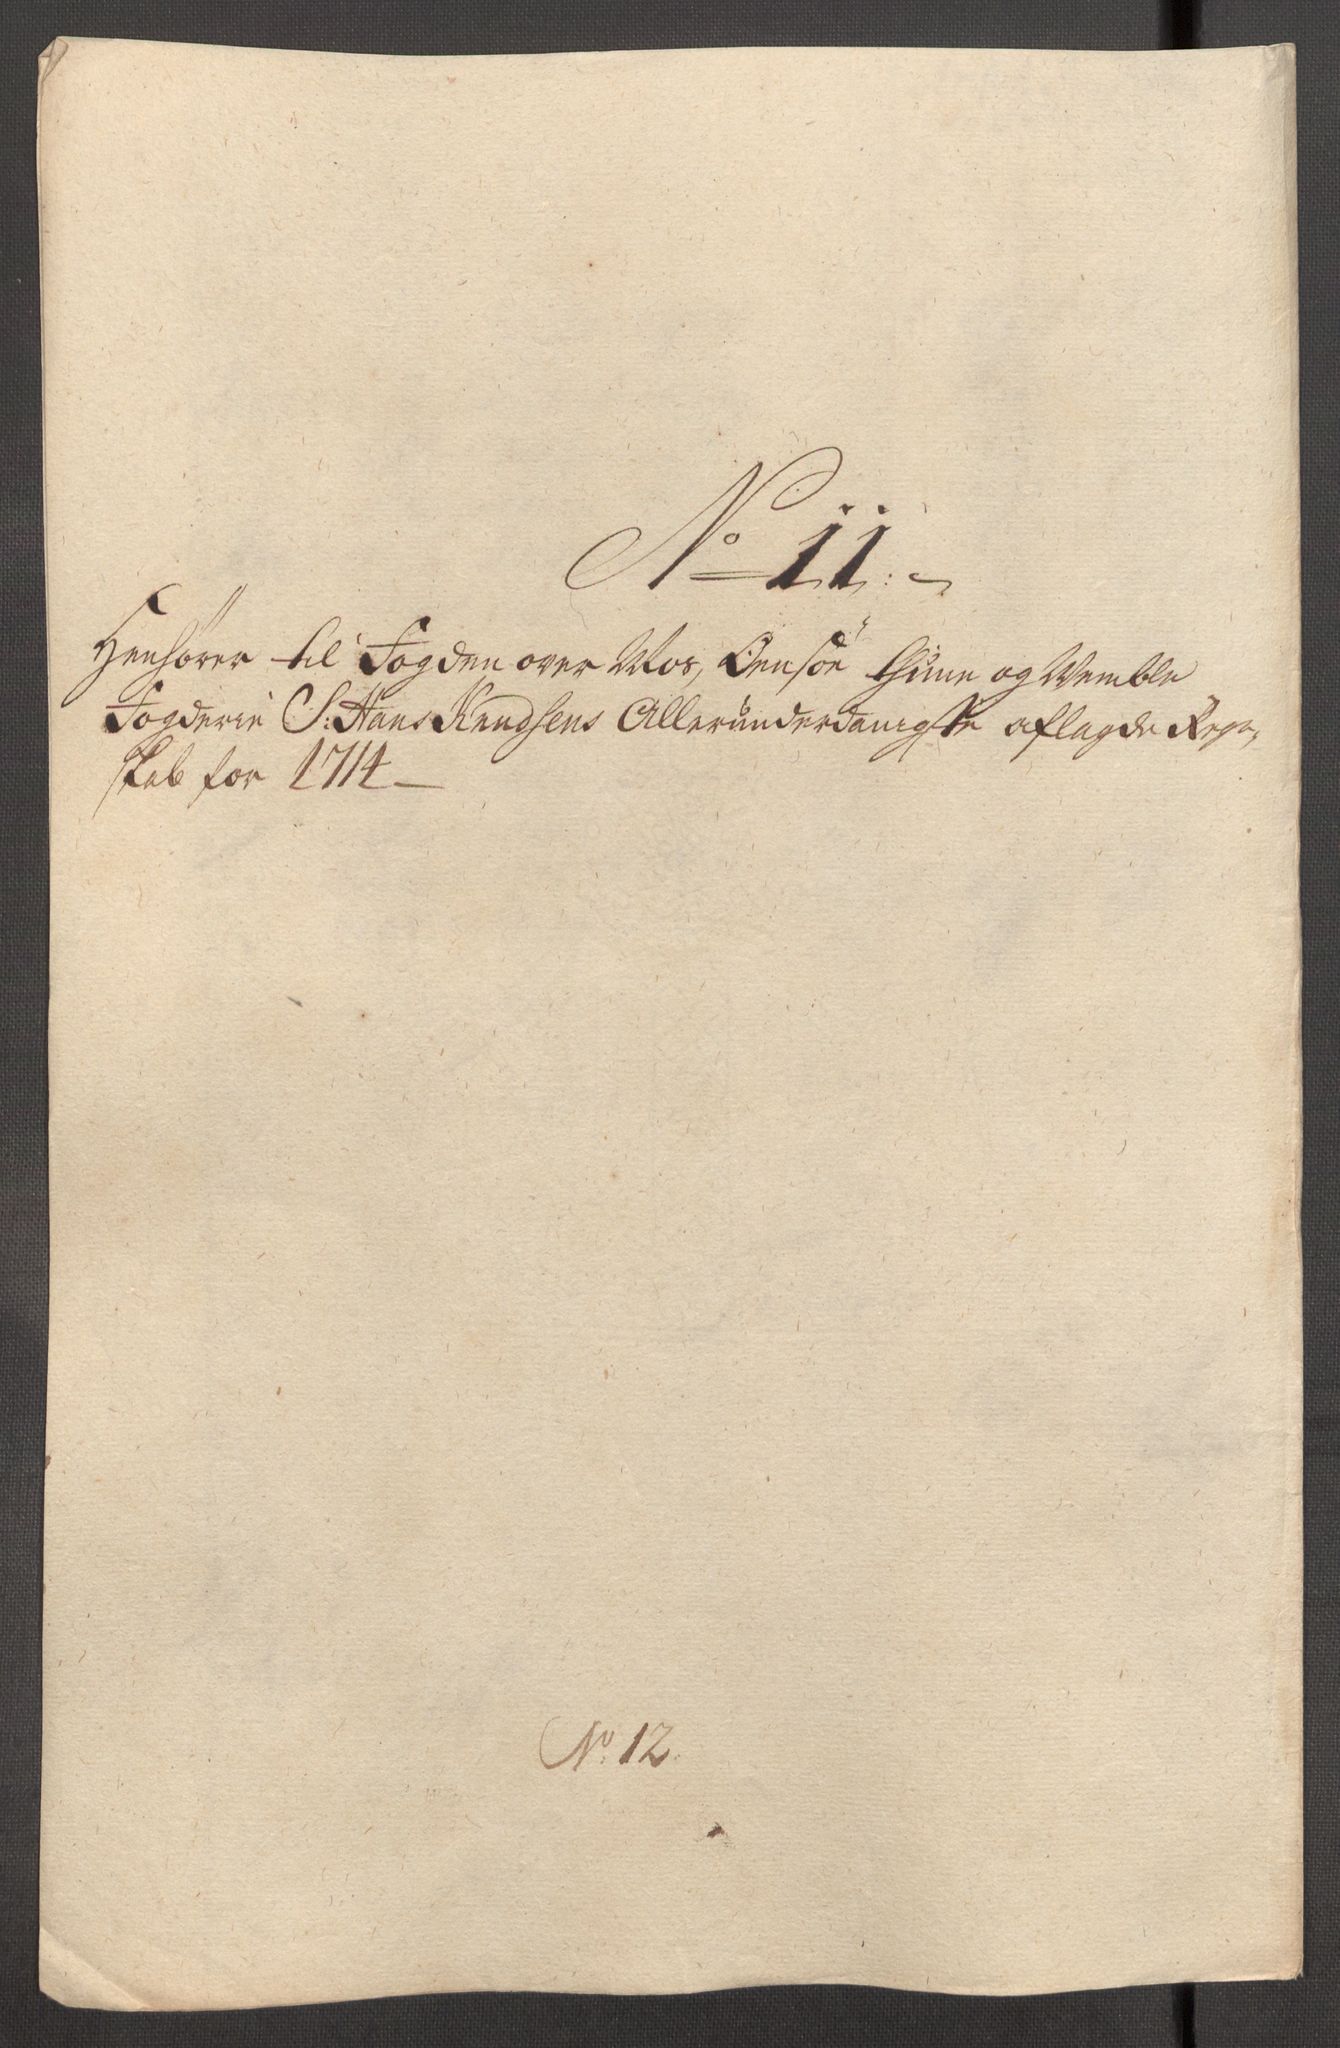 No 11.
Henhører til Fogden over Mos, Onsøe Thune og Wemble
Fogderie S: Hans Knudsens Allerunderdanigste aflagde Regn,
skab for 1714
No. 12.